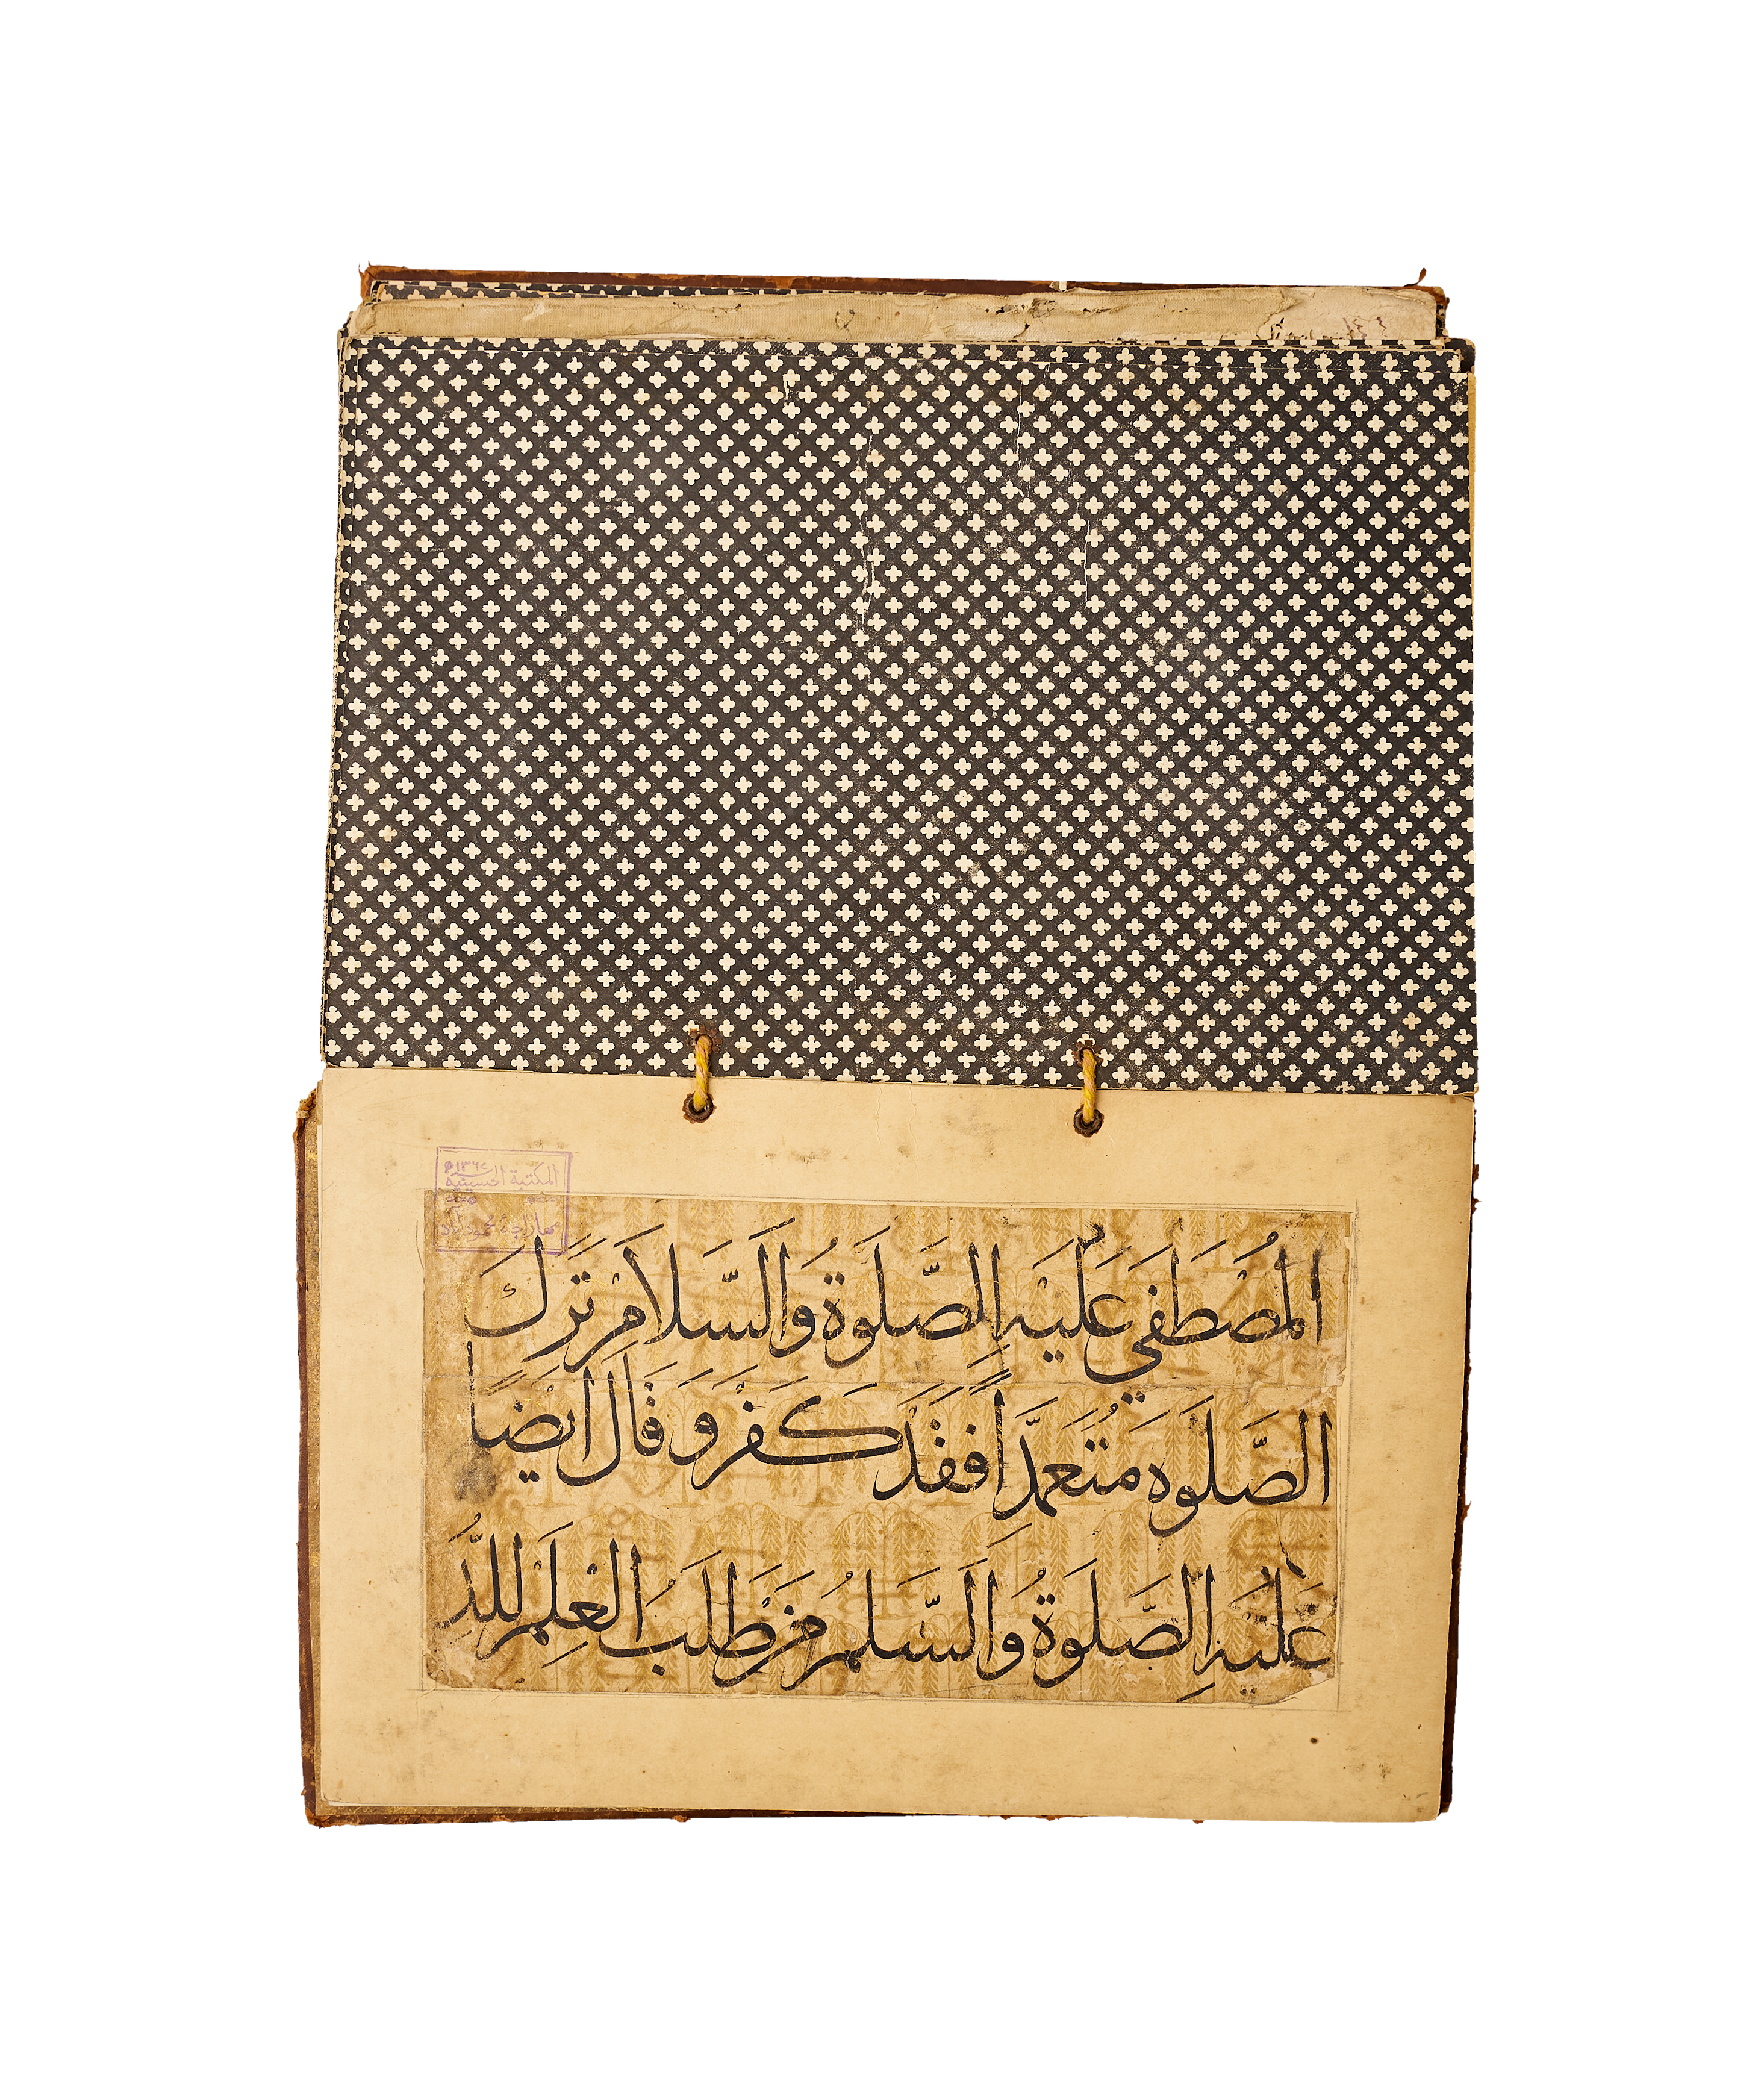 ١٣٦٧
المكتبة الحسينية
المُصْطَفَي عَلَيْهِ الصَّلَوةُ وَالسَّلَامُ تَرَكَ
الصَّلَوه مُتَعَمِّدًا فَقَدْ كَفَرَ وَ قَالَ اَيْضًا
عَلَيْهِ الصَّلَوةُ وَالسَّلَمُ مَنْ طَلَبَ الْعِلْمَ لِلدُّ